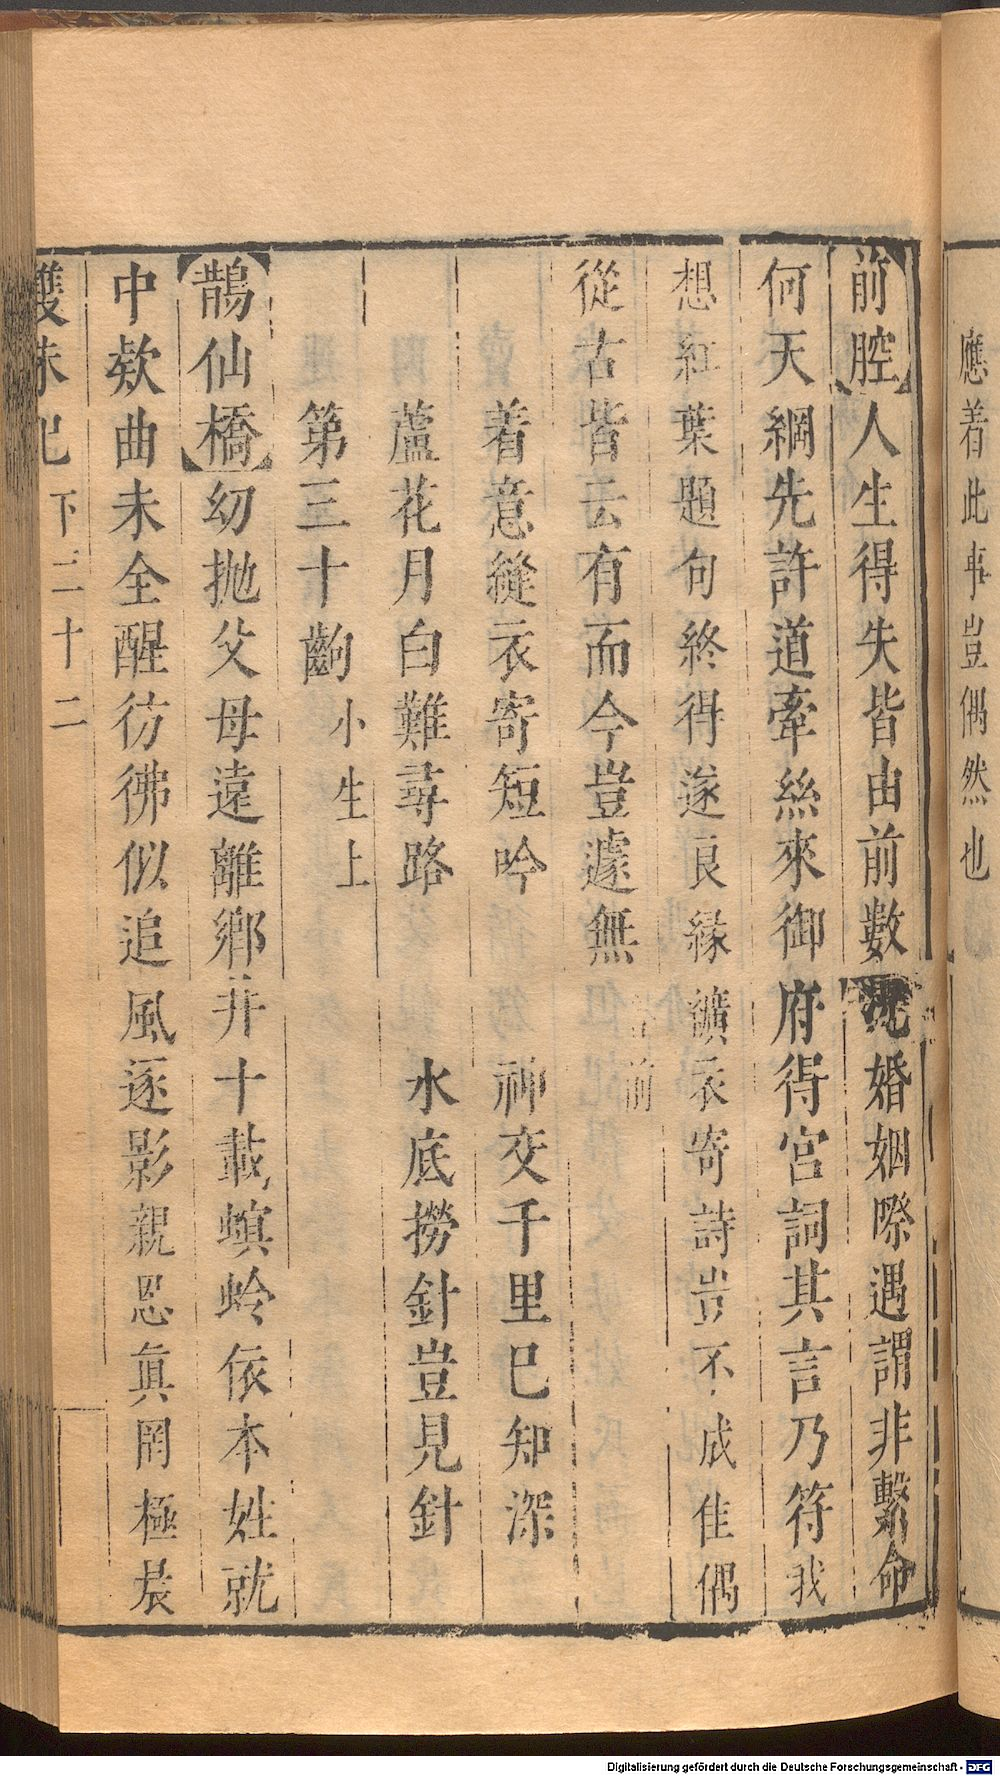 應着此事豈偶然也
前腔人生得失皆由前數況婚姻際遇謂非繫命
何天網先許道牽絲來御府得宮詞其言乃符我
想紅葉題句終得遂良緣纊衣寄詩豈不成佳偶
從古皆云有而今豈遽無 前
着意縫衣寄短吟 神交千里已知深
蘆花月白難尋路 水底撈針豈見針
第三十齣 小生上
鵲仙橋幼拋父母遠離鄉井十載螟蛉依本姓就
中欵曲未全醒彷彿似追風逐影親恩眞罔極晨
雙珠記 下 三十二
Digitalisierung gefördert durch die Deutsche Forschungsgemeinschaft - DFG